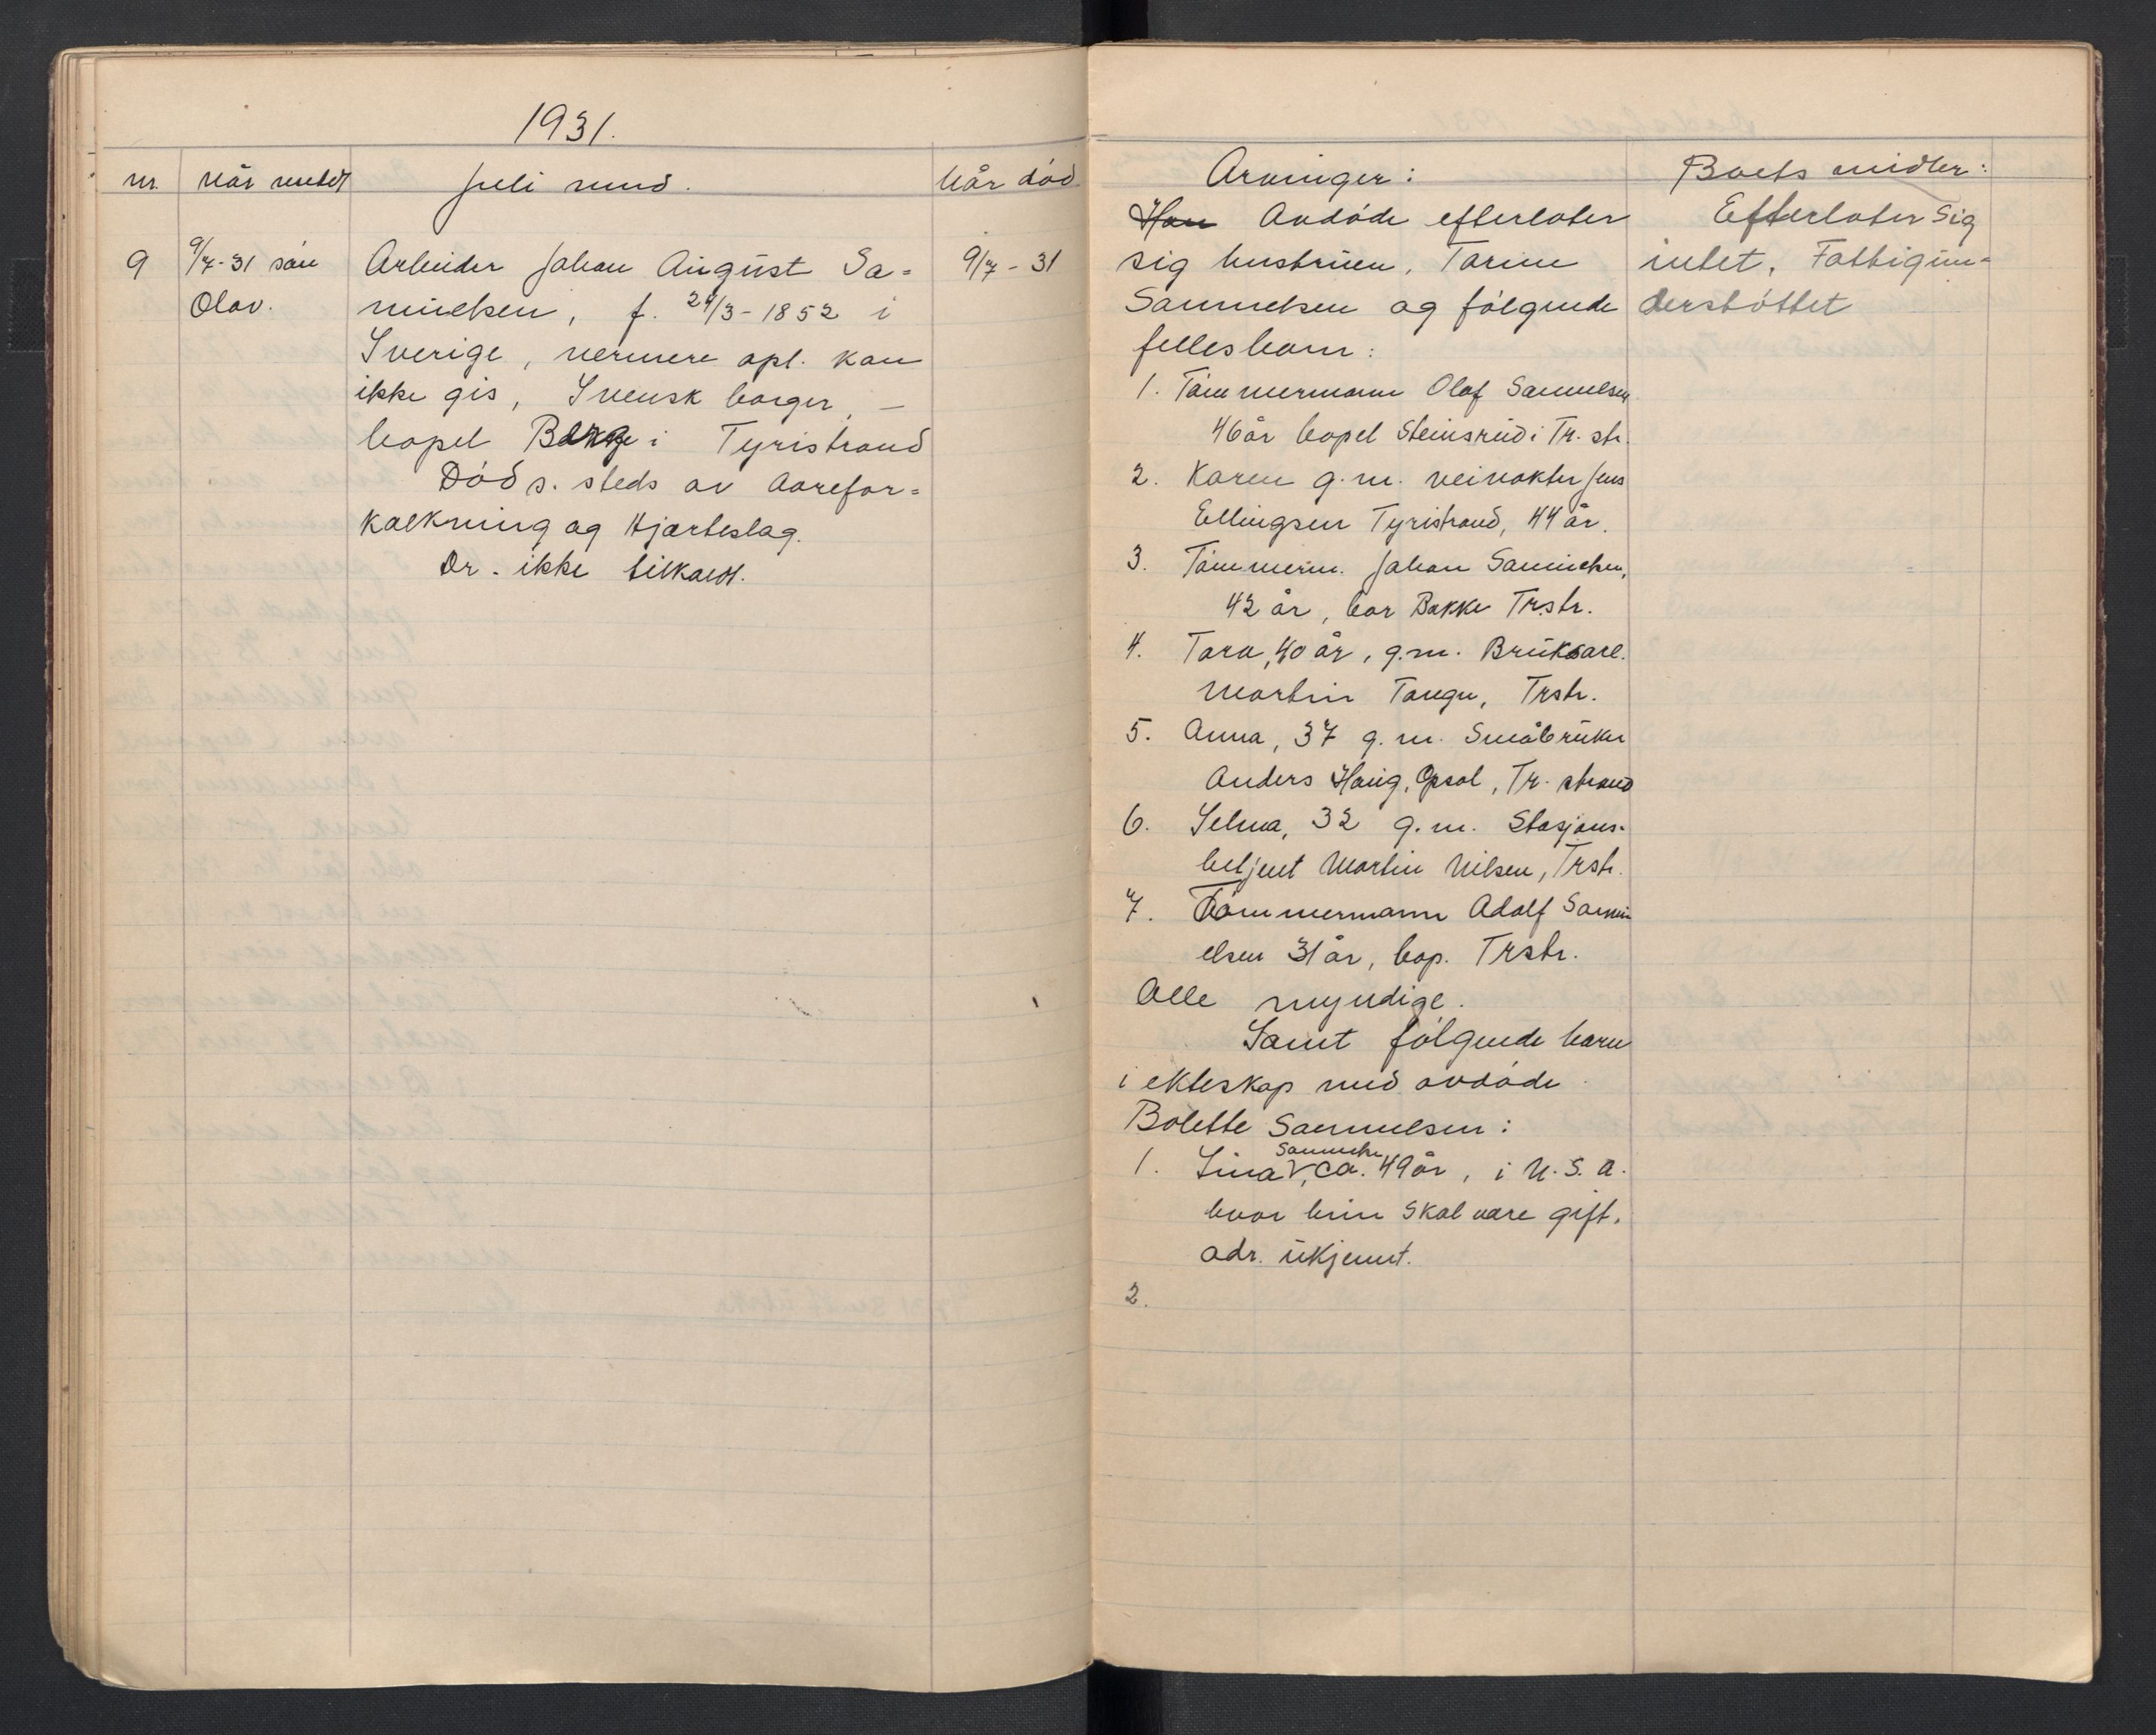 1931.
nr. når meldt Juli mnd. Når död
9 9/7-31 sön Arbeider Johan August Sa= 9/7-31
Olav. muelsen, f. 24/3-1852 i
Sverige, nermere opl. kan
ikke gis, Svensk borger, –
bopel Bakke i Tyristrand
Död s. steds av Aarefor=
kalkning og Hjarteslag.
Dr. ikke tilkalt.
Arvinger:
Han Avdöde efterlater
sig hustruen, Torine
Samuelsen og fölgende
fellesbarn:
1. Tömmermann Olaf Samuelsen
46 år bopel Steinsrud i Tr. str.
2. Karen g.m. veivokter Jens
Ellingsen Tyristrand, 44 år.
3. Tömmerm. Johan Samuelsen,
42 år, bor Bakke Trstr.
4. Tora, 40 år, g.m. Bruksarb.
Martin Tangen, Trstr.
5. Anna, 37 g.m. Småbruker
Anders Haug, Opsal, Tr. strand
6. Selma, 32 g.m. Stasjons-
betjent Martin Nilsen, Trstr.
7. Tömmermann Adolf Samu
elsen 31 år, bop. Trstr.
Alle myndige.
Samt fölgende barn
i ekteskap med avdöde
Bolette Samuelsen:
Samuelsen
1. Lina V, ca. 49 år, i U.S.A.
hvor hun skal være gift,
adr. ukjennt.
2.
Boets midler:
Efterlater sig
intet, Fattigun-
derstöttet